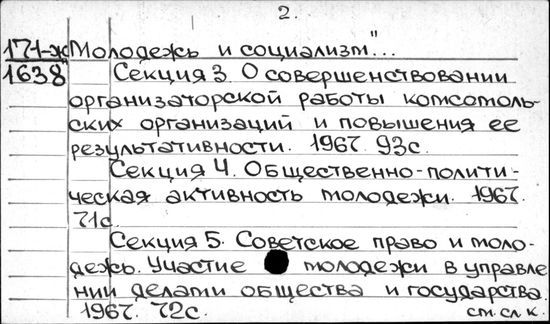 2.
171-ж Молодежь и социализм"...
1638 Секция 3. О совершенствовании
организаторской работы комсомоль-
ских организаций и повышения ее
результативности. 1967. 93с.
Секция 4. Общественно-полити-
ческая активность молодежи. 1967.
71с.
Секция 5. Советское право и моло-
дежь. Участие молодежи в управле
нии делами общества и государства.
1967. 72с. см. сл. к.